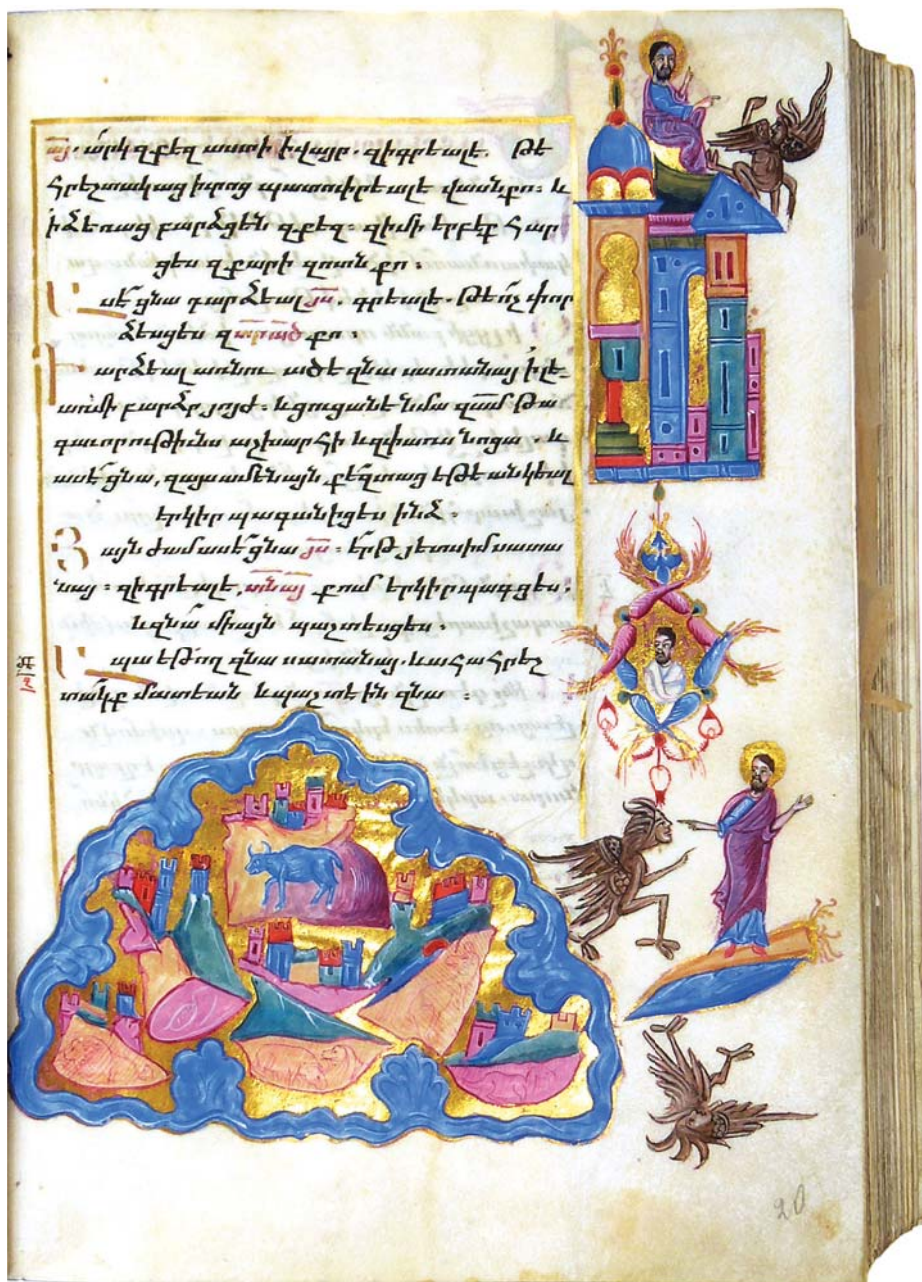 այ. արկ զքեզ աստի ի վայր. զի գրեալ է. Թէ
հրեշտակաց իւրոց պատուիրեալ է վասն քո. և
ի ձեռաց բարձցեն զքեզ. զի մի երբեք հար
ցես զքարի զոտն քո.
Ասէ ցնա դարձեալ յս. գրեալ է. Թէ ոչ փոր
ձեսցես զտր ած քո.
Դարձեալ առնու ածէ զնա սատանայ ի լե
առն մի բարձր յոյժ. և ցուցանէ նմա զամ Թա
գաւորութիւնս աշխարհի և զփառս նոցա. և
ասէ ցնա, զայս ամենայն քեզ տաց եթէ անկեալ
երկիր պագանիցես ինձ.
Յայն ժամ ասէ ցնա յս. երթ յետս իմ սատա
նայ. զի գրեալ է, տն այ քում երկիր պագցես.
և զնա միայն պաշտեսցես.
Ապա եթող զնա սատանայ. և ահա հրեշ
տակք մատեան և պաշտէին զնա.
20